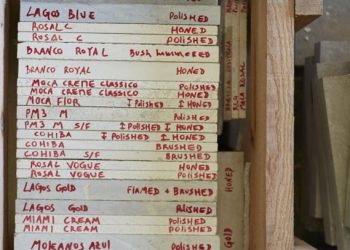 LAGOS BLUE POLISHED
ROSAL C HONED
ROSAL C POLISHED
BRANCO ROYAL BUSH HAMMERED
BRANCO ROYAL HONED
MOCA CREME CLASSICO POLISHED
MOCA CREME CLASSICO HONED
MOCA FIOR ↕ POLISHED ↕ HONED
PM3 M POLISHED
PM3 M S/F ↕ POLISHED ↕ HONED
COHIBA ↕ POLISHED ↕ HONED
COHIBA BRUSHED
COHIBA S/F BRUSHED
ROSAL VOGUE HONED
ROSAL VOGUE POLISHED
LAGOS GOLD FLAMED + BRUSHED
LAGOS GOLD POLISHED
MIAMI CREAM POLISHED
MIAMI CREAM HONED
MOLEANOS AZUL POLISHED
HONED
GOLD